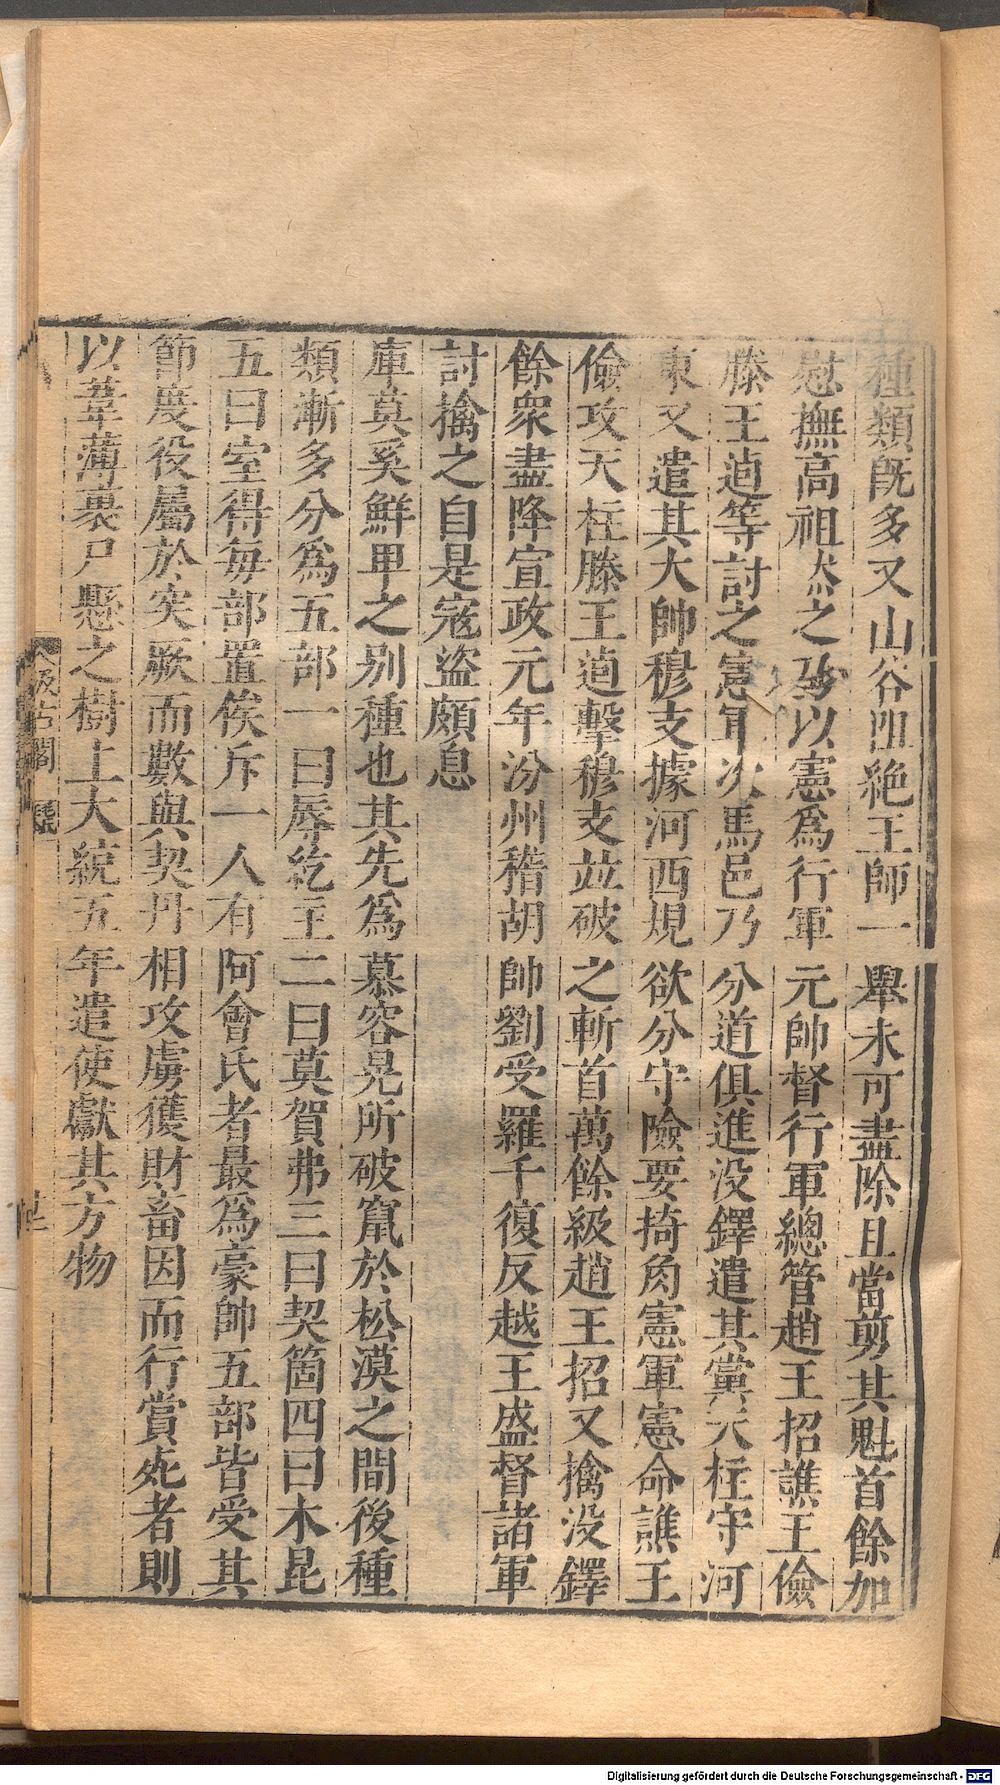 種類旣多又山谷阻絶王師一舉未可盡除且當剪其魁首餘加
慰撫高祖然之乃以憲爲行軍元帥督行軍總管趙王招譙王儉
滕王逌等討之憲軍次馬邑乃分道俱進没鐸遣其黨天柱守河
東又遣其大帥穆支據河西規欲分守險要掎角憲軍憲命譙王
儉攻天柱滕王逌擊穆支竝破之斬首萬餘級趙王招又擒没鐸
餘衆盡降宣政元年汾州稽胡帥劉受羅千復反越王盛督諸軍
討擒之自是寇盜頗息
庫莫奚鮮卑之别種也其先爲慕容晃所破竄於松漠之間後種
類漸多分爲五部一曰辱紇主二曰莫賀弗三曰契箇四曰木昆
五曰室得每部置俟斤一人有阿會氏者最爲豪帥五部皆受其
節度役屬於突厥而數與契丹相攻虜獲財畜因而行賞死者則
以葦薄裹尸懸之樹上大統五年遣使獻其方物
汲古閣
Digitalisierung gefördert durch die Deutsche Forschungsgemeinschaft - DFG